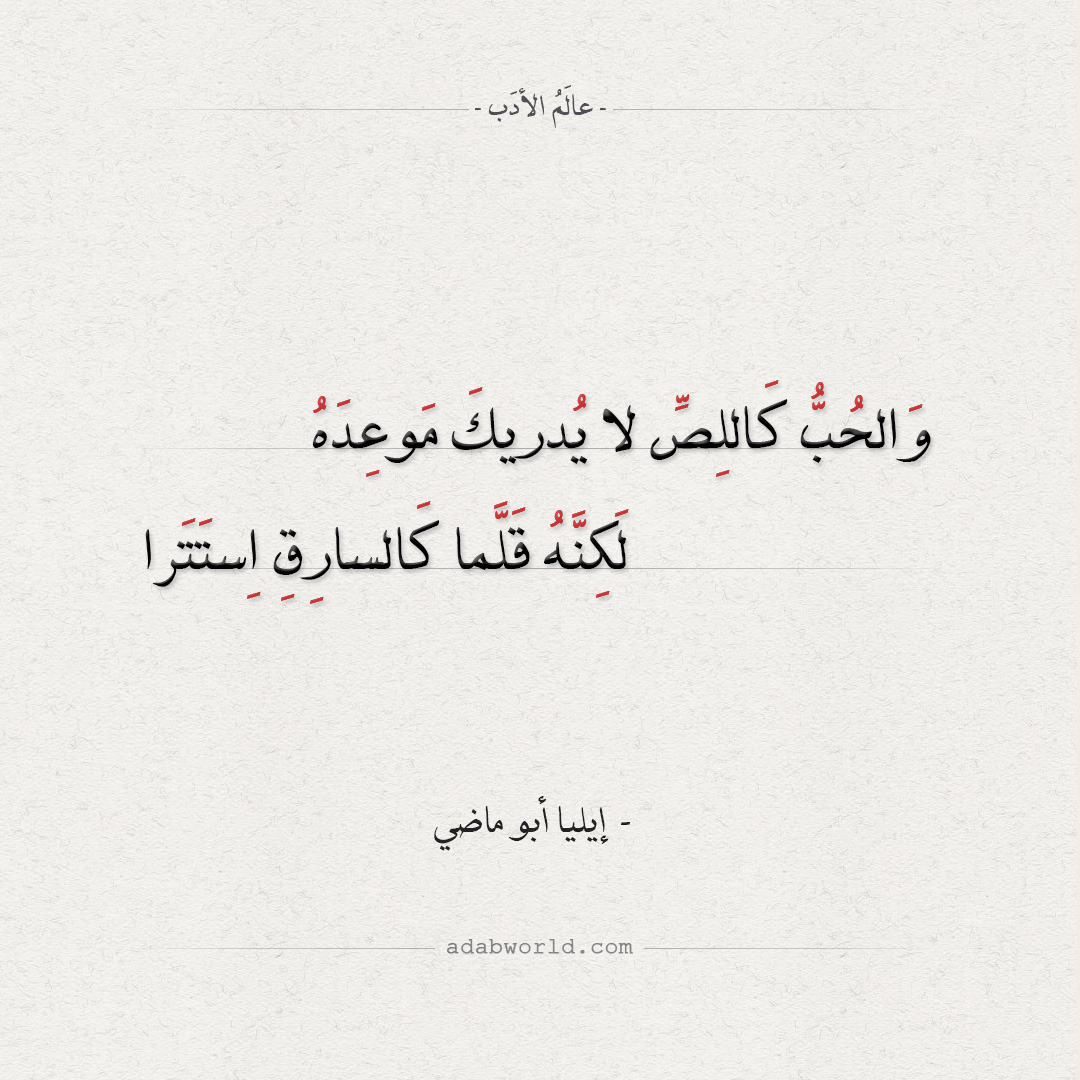 - عالَمُ الأدَب -
وَالحُبُّ كَاللِصِّ لا يُدريكَ مَوعِدَهُ
لَكِنَّهُ قَلَّما كَالسارِقِ اِستَتَرا
- إيليا أبو ماضي
adabworld.com